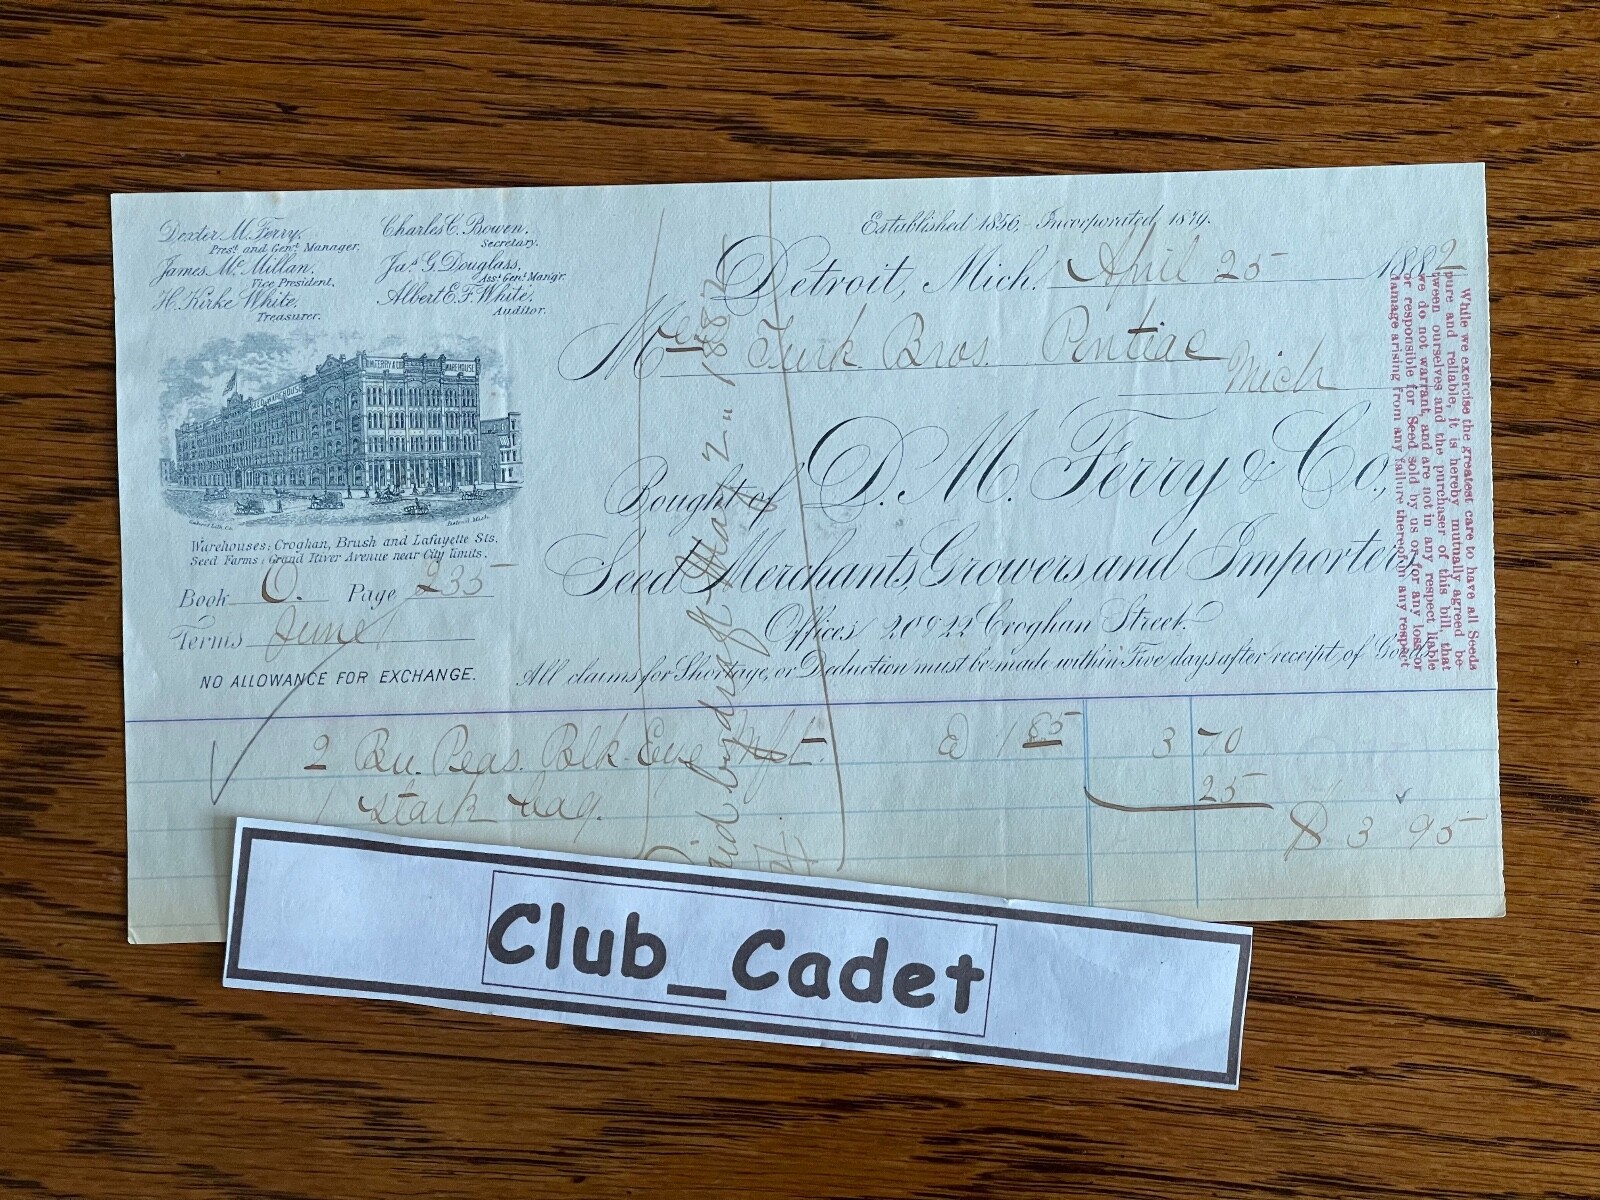 Dexter M. Ferry,
Prest. and Genl. Manager.
James Mc Millan,
Vice President.
H. Kirke White,
Treasurer.
Charles C. Bowen.
Secretary.
Jas. G. Douglass,
Asst Genl Mang'r.
Albert E. F. White,
Auditor.
D.M. FERRY & CO
WAREHOUSE
SEED WAREHOUSE
Warehouses: Croghan, Brush and Lafayette Sts.
Seed Farms: Grand River Avenue near City limits.
Book O. Page 235
Terms June 1
NO ALLOWANCE FOR EXCHANGE.
Established 1856.- Incorporated 1879.
Detroit, Mich. April 25 1882
Bros. Pontiac
Mich
Bought of D. M. Ferry & Co.,
Seed Merchants, Growers and Importers,
Offices 20 & 22 Croghan Street.
All claims for Shortage, or Deduction must be made within Five days after receipt of Goods.
While we exercise the greatest care to have all Seeds
pure and reliable, it is hereby mutually agreed be-
tween ourselves and the purchaser of this bill, that
we do not warrant, and are not in any respect liable
or responsible for Seed sold by us or for any loss or
damage arising from any failure thereof in any respect
2 Bu. Peas. Blk. Eye Mft. @ 1 85 3 70
1 stark bag. 25
$ 3 95
Paid by draft May 2" 1882
Club_Cadet